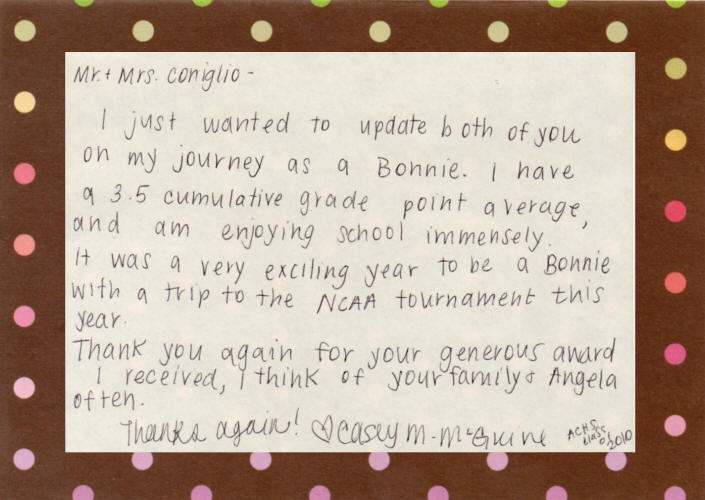 Mr. + Mrs. Coniglio -
I just wanted to update both of you
on my journey as a Bonnie. I have
a 3.5 cumulative grade point average,
and am enjoying school immensely.
It was a very exciting year to be a Bonnie
with a trip to the NCAA tournament this
year.
Thank you again for your generous award
I received, I think of your family & Angela
often.
Thanks again! ♡ Casey M. McGuire
ACHS
class of
2010